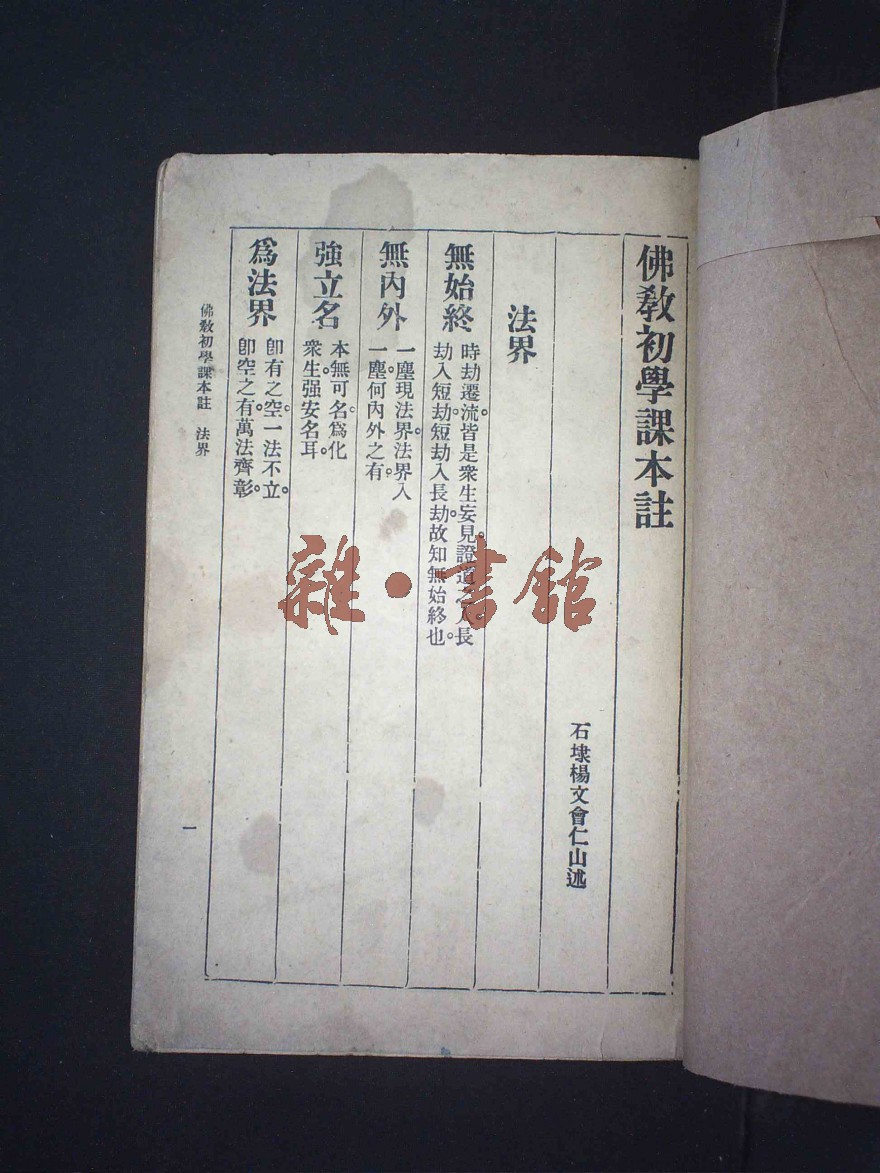 佛教初學課本註
石埭楊文會仁山述
法界
無始終
時劫遷流。皆是衆生妄見。證道之人。長
劫入短劫。短劫入長劫。故知無始終也。
無內外
一塵現法界。法界入
一塵。何內外之有。
強立名
本無可名。爲化
衆生。强安名耳。
爲法界
卽有之空。一法不立。
卽空之有。萬法齊彰。
佛教初學課本註 法界
一
雜·書館